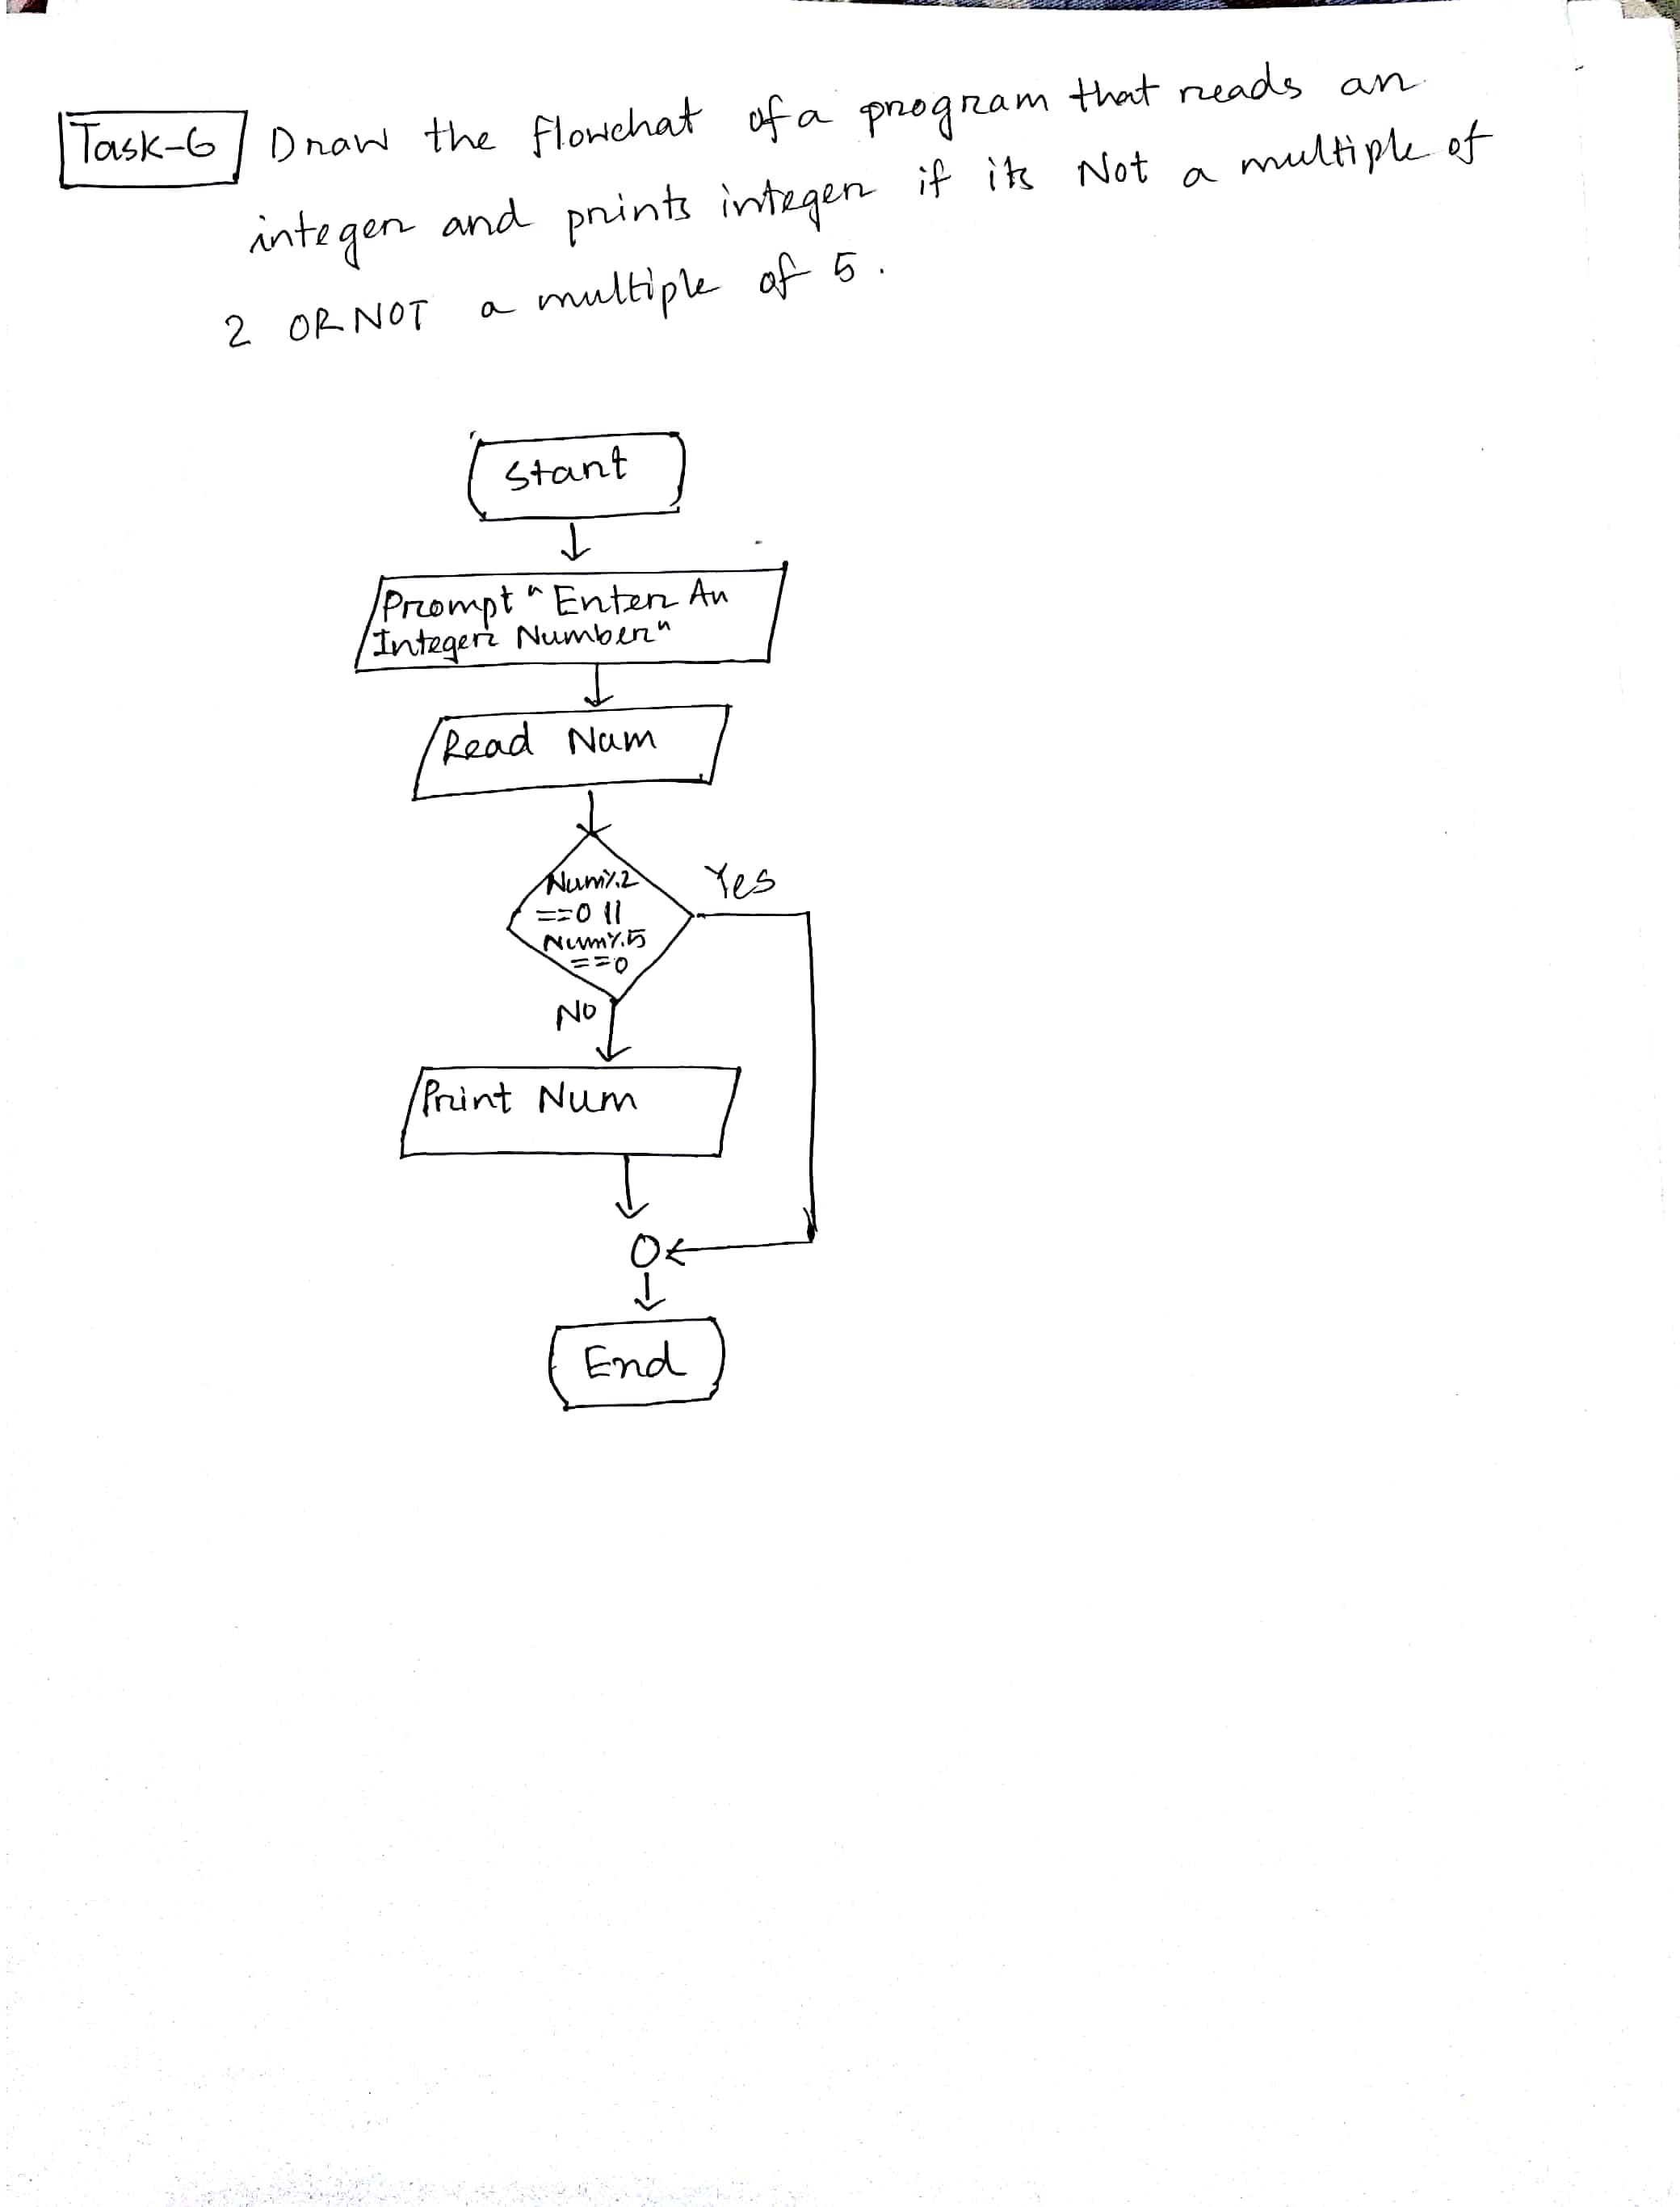 Task-6 Draw the flowchat of a program that reads an
integer and prints integer if its Not a multiple of
2 OR NOT a multiple of 5.
Start
Prompt "Enter An
Integer Number"
Read Num
Num%2
==0 ||
Num%5
==0
Yes
No
Print Num
End